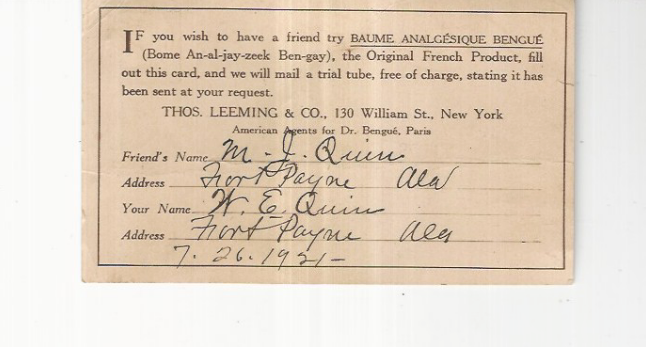 IF you wish to have a friend try BAUME ANALGÉSIQUE BENGUÉ
(Bome An-al-jay-zeek Ben-gay), the Original French Product, fill
out this card, and we will mail a trial tube, free of charge, stating it has
been sent at your request.
THOS. LEEMING & CO., 130 William St., New York
American Agents for Dr. Bengué, Paris
Friend's Name M. J. Quin
Address Fort Payne Ala
Your Name W. E. Quin
Address Fort Payne Ala
7. 26. 1921-